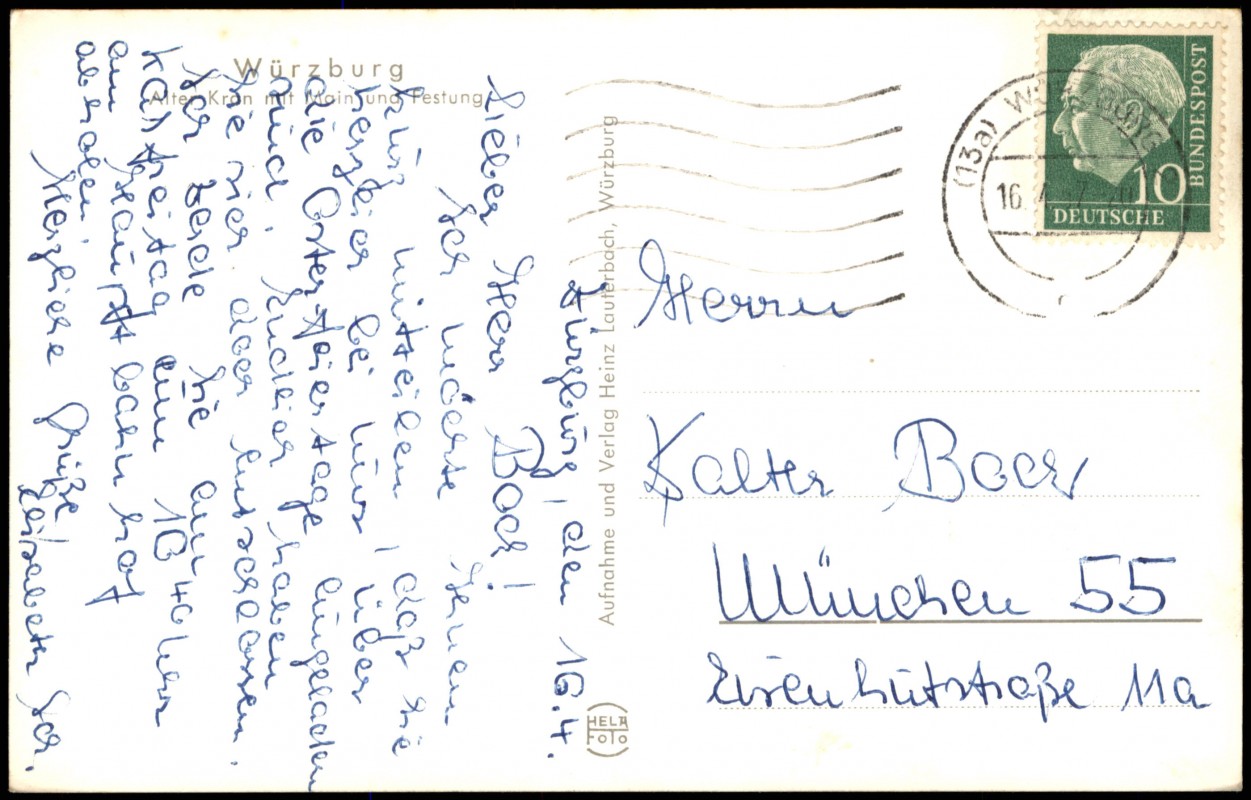 Würzburg
Alter Kran mit Main und Festung
Würzburg, den 16.4.
Lieber Herr Bock!
Ich möchte Ihnen
kurz mitteilen, daß Sie
herzlich bei uns über
die Osterfeiertage eingeladen
sind.
haben
Sie hier
Ich hole Sie am
Karfreitag um 16 40 Uhr
am Hauptbahnhof
abholen.
Herzliche Grüße
Elisabeth Sch.
Aufnahme und Verlag Heinz Lauterbach, Würzburg
HELA
FOTO
DEUTSCHE
BUNDESPOST
10
(13a) WÜRZBURG
16. 4. 57
Herrn
Walter Bock
München 55
Eisenhutstraße 11a